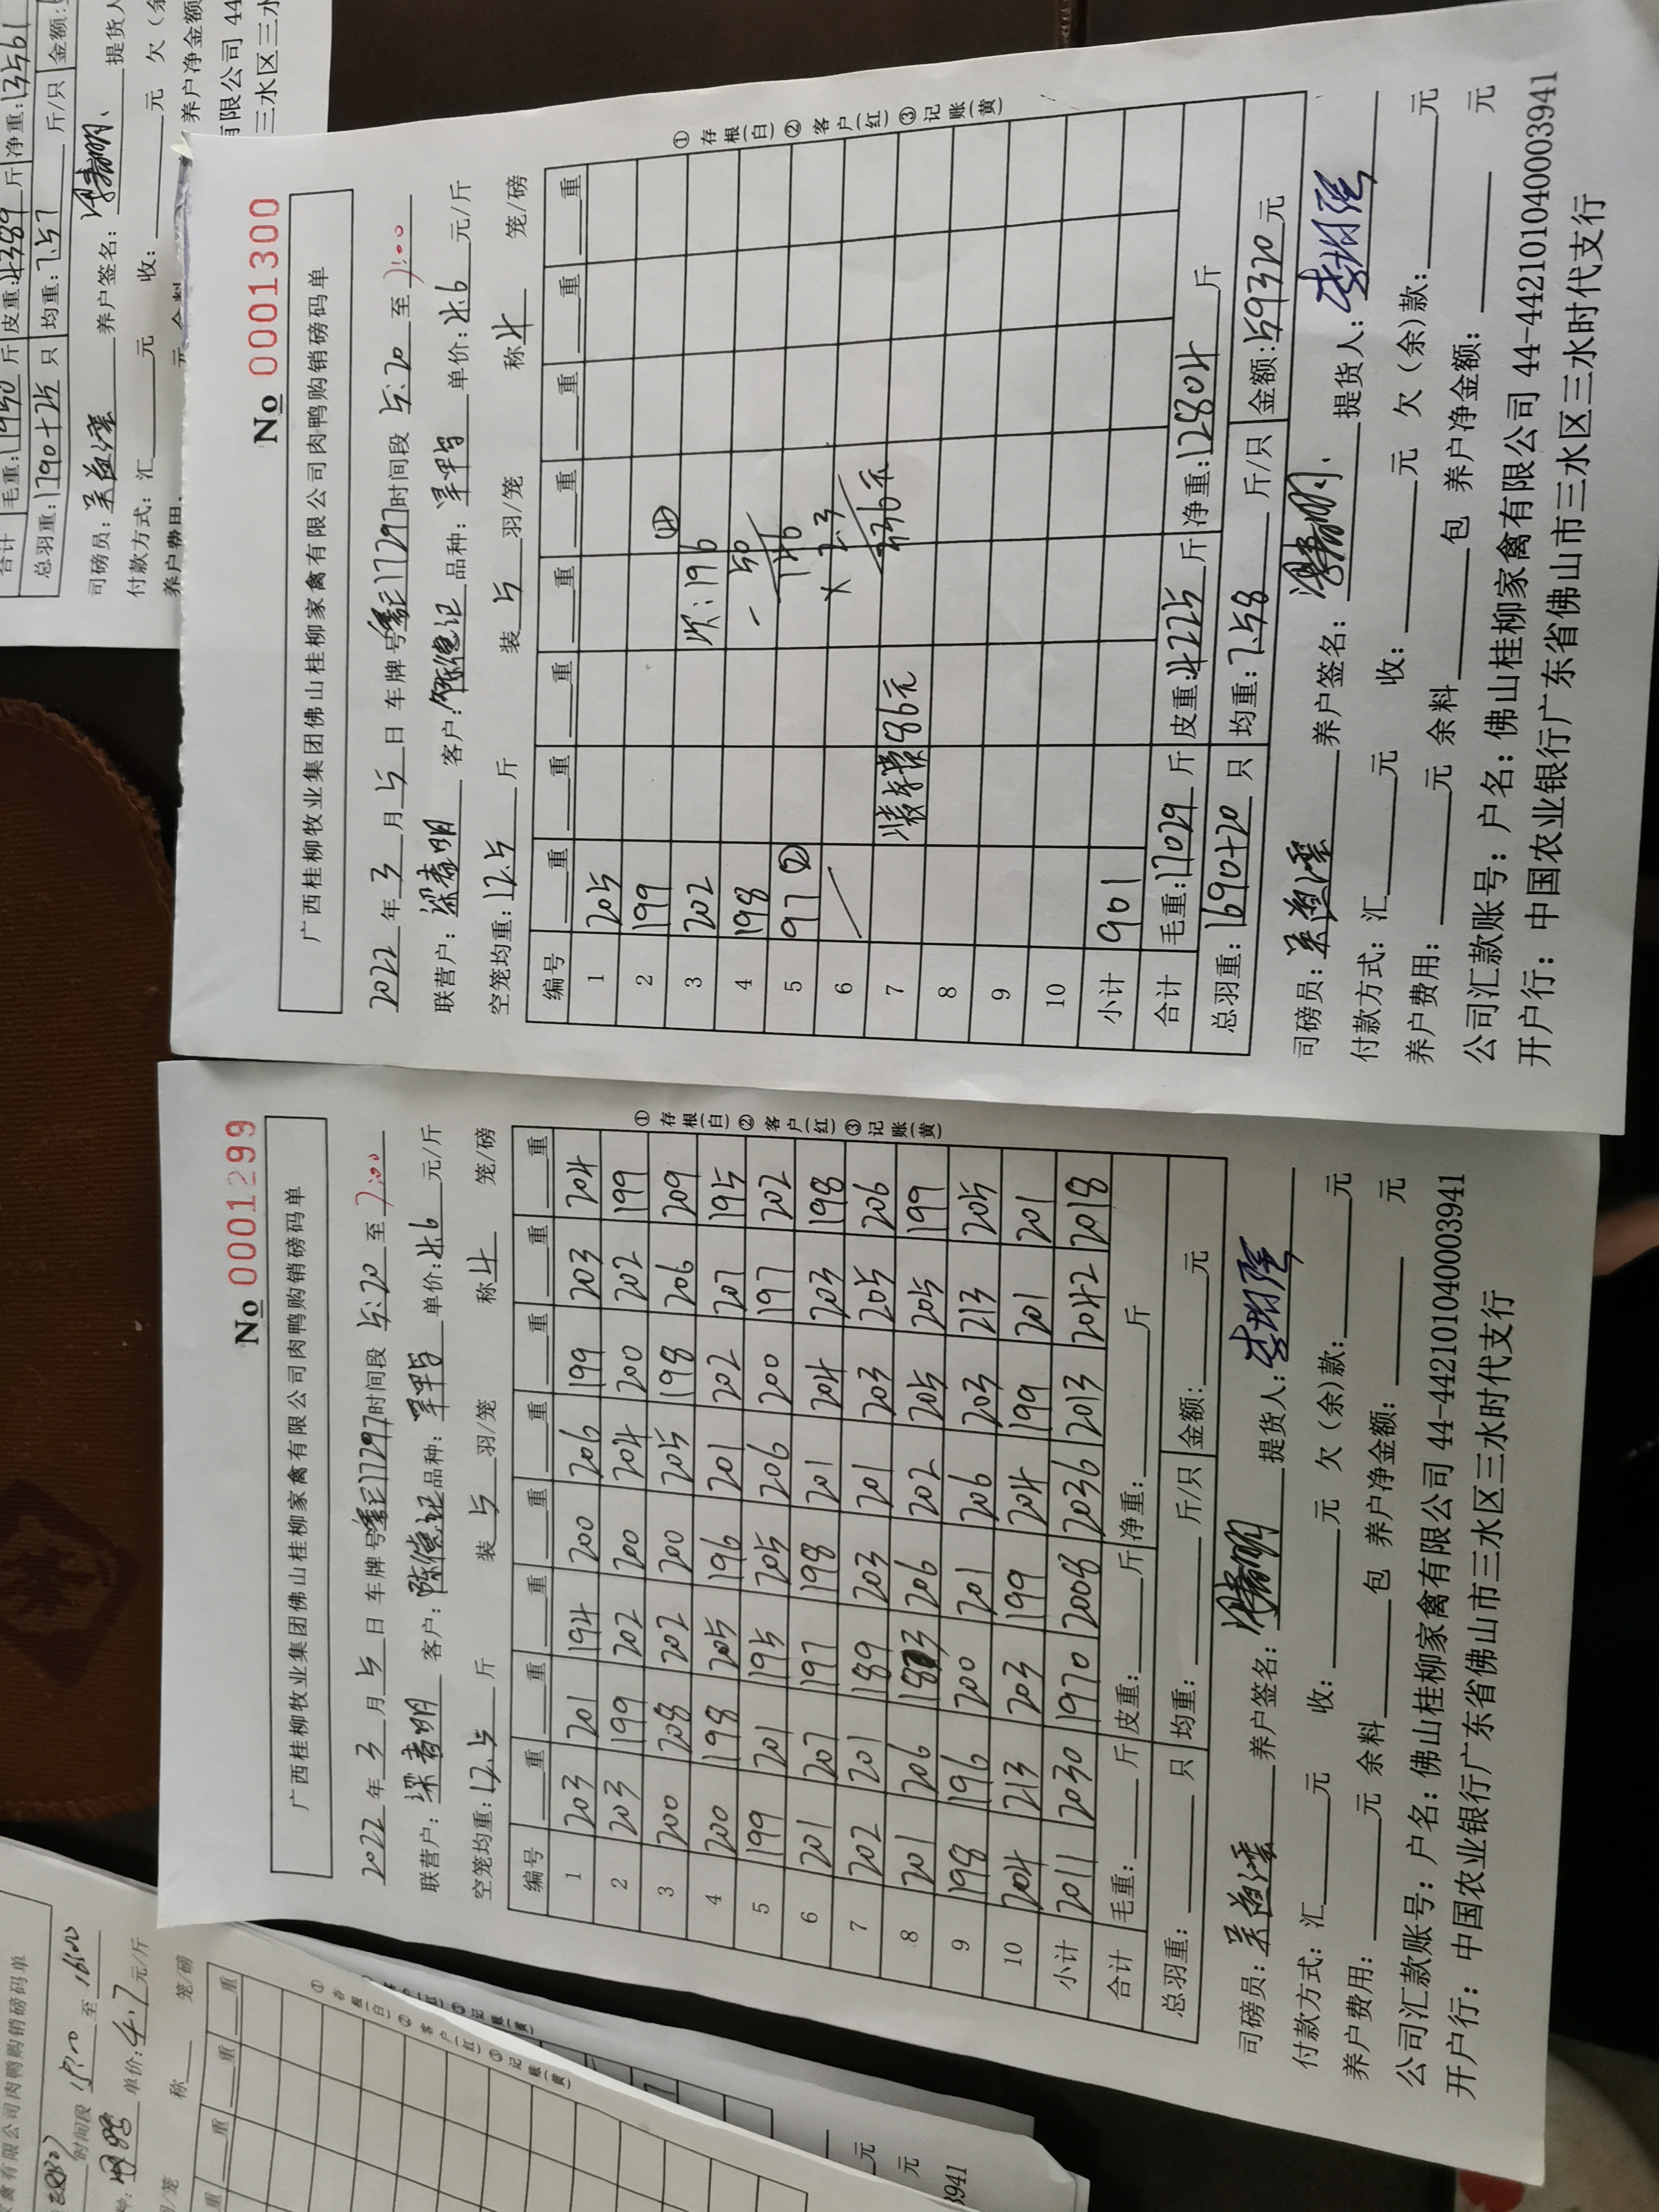 No 0001299
广西桂柳牧业集团佛山桂柳家禽有限公司肉鸭购销磅码单
2022 年 3 月 5 日 车牌号 17297 时间段 5:20 至 7:00
联营户: 梁春明 客户: 陈健记 品种: 单价: 4.6 元/斤
空笼均重: 12.5 斤 装 5 羽/笼 称 4 笼/磅
编号 重 重 重 重 重 重 重 重
1 203 201 194 200 206 199 203 204
2 203 199 202 200 204 200 202 199
3 200 208 202 200 205 198 206 209
4 200 198 205 196 201 202 207 195
5 199 201 195 205 206 200 197 202
6 201 207 197 198 201 204 203 198
7 202 201 189 203 201 203 205 206
8 201 206 183 206 202 205 205 199
9 198 196 200 201 206 203 213 205
10 204 213 203 199 204 199 201 201
小计 2011 2030 1970 2008 2036 2013 2042 2018
合计 毛重: 斤 皮重: 斤 净重: 斤
总羽重: 只 均重: 斤/只 金额: 元
①存根(白)②客户(红)③记账(黄)
司磅员: 养户签名: 提货人:
付款方式: 汇 元 收: 元 欠(余)款: 元
养户费用: 元 余料 包 养户净金额: 元
公司汇款账号: 户名: 佛山桂柳家禽有限公司 44-442101040003941
开户行: 中国农业银行广东省佛山市三水区三水时代支行
No 0001300
广西桂柳牧业集团佛山桂柳家禽有限公司肉鸭购销磅码单
2022 年 3 月 5 日 车牌号 17297 时间段 5:20 至 7:00
联营户: 梁春明 客户: 陈健记 品种: 单价: 4.6 元/斤
空笼均重: 12.5 斤 装 5 羽/笼 称 4 笼/磅
编号 重 重 重 重 重 重 重 重
1 205
2 199 ④
3 202 次: 196
4 198 - 50
5 97 ② 146
6 × 2.3
7 装车费 86元 336元
8
9
10
小计 901
合计 毛重: 17029 斤 皮重: 4225 斤 净重: 12804 斤
总羽重: 1690+20 只 均重: 7.58 斤/只 金额: 59320 元
①存根(白)②客户(红)③记账(黄)
司磅员: 养户签名: 提货人:
付款方式: 汇 元 收: 元 欠(余)款: 元
养户费用: 元 余料 包 养户净金额: 元
公司汇款账号: 户名: 佛山桂柳家禽有限公司 44-442101040003941
开户行: 中国农业银行广东省佛山市三水区三水时代支行
合计 毛重: 斤 皮重: 4389 斤 净重: 13561
总羽重: 1790+25 只 均重: 7.57 斤/只 金额:
司磅员: 养户签名: 提货人
付款方式: 汇 元 收: 元 欠(余
养户费用: 元 余料 养户净金额
有限公司 44
三水区三水
禽有限公司肉鸭购销磅码单
时间段 至
单价: 4.7 元/斤
称 笼/磅
重 重 重
①存根(白)②客户(红)③记账(黄)
元
元
3941